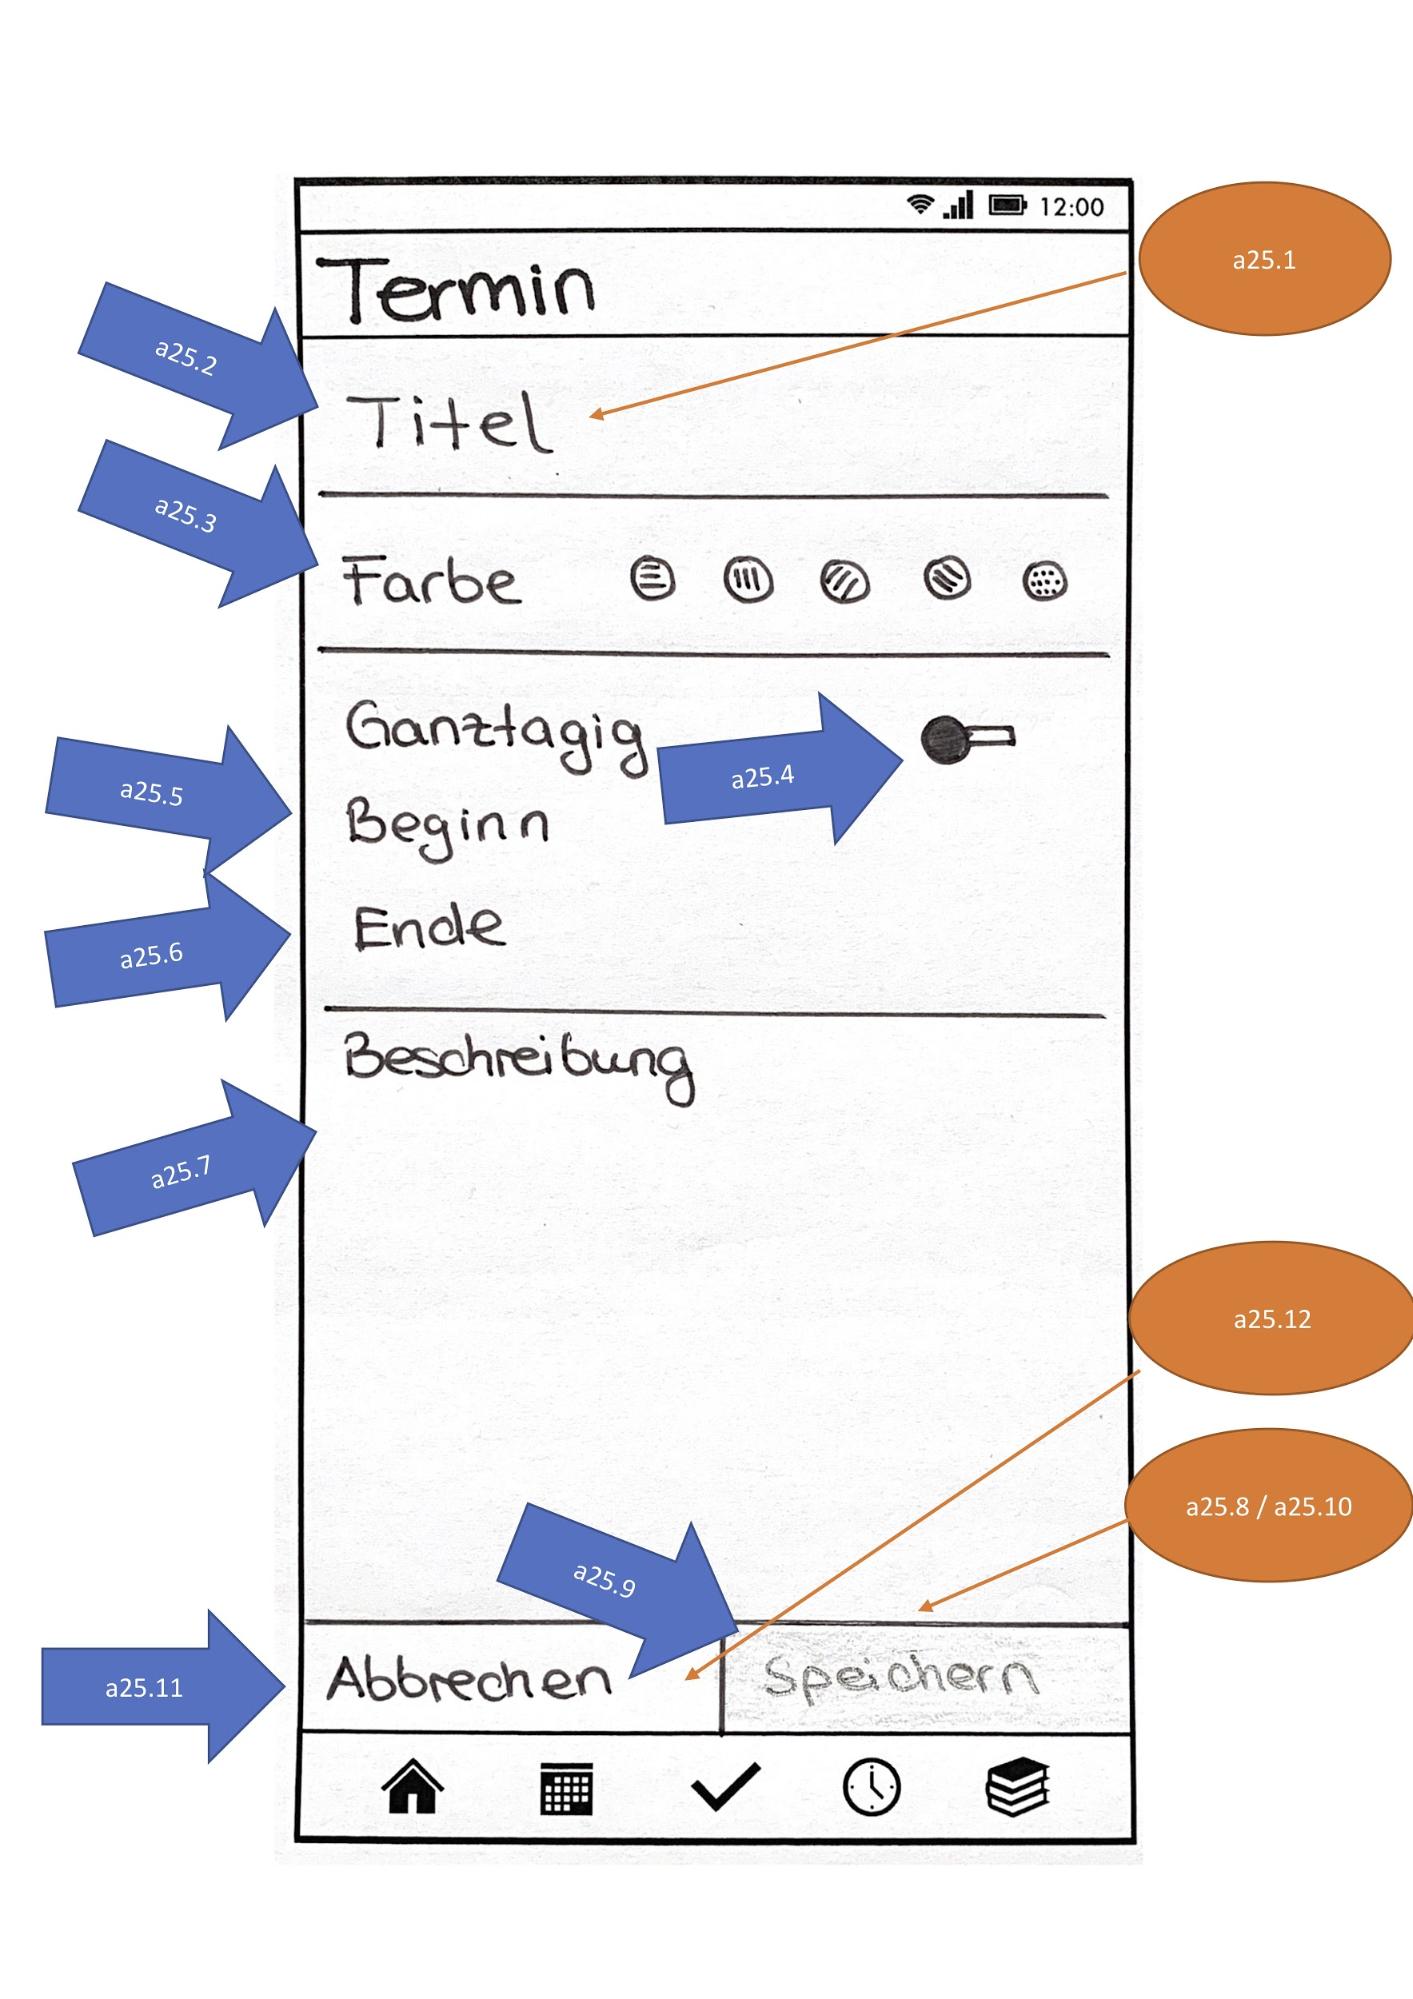 12:00
a25.1
Termin
a25.2
Titel
a25.3
Farbe
Ganztagig
a25.4
a25.5
Beginn
a25.6
Ende
Beschreibung
a25.7
a25.12
a25.8 / a25.10
a25.9
a25.11
Abbrechen
Speichern